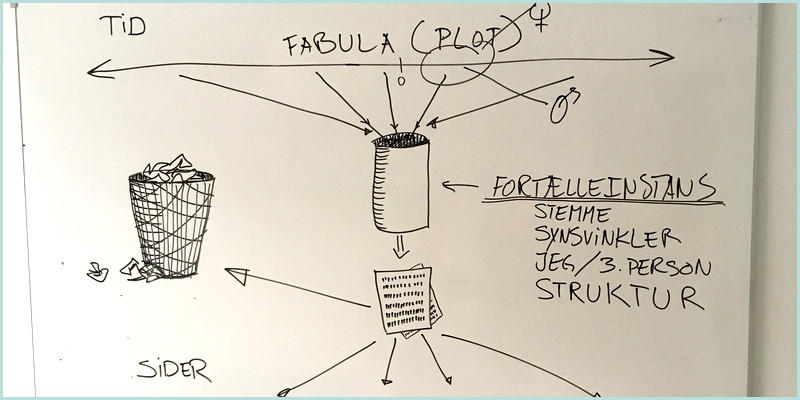 TiD
FABULA (PLOT) ♀
0
♂
FORTÆLLEINSTANS
STEMME
SYNSViNKLER
JEG/3. PERSON
STRUKTUR
SiDER